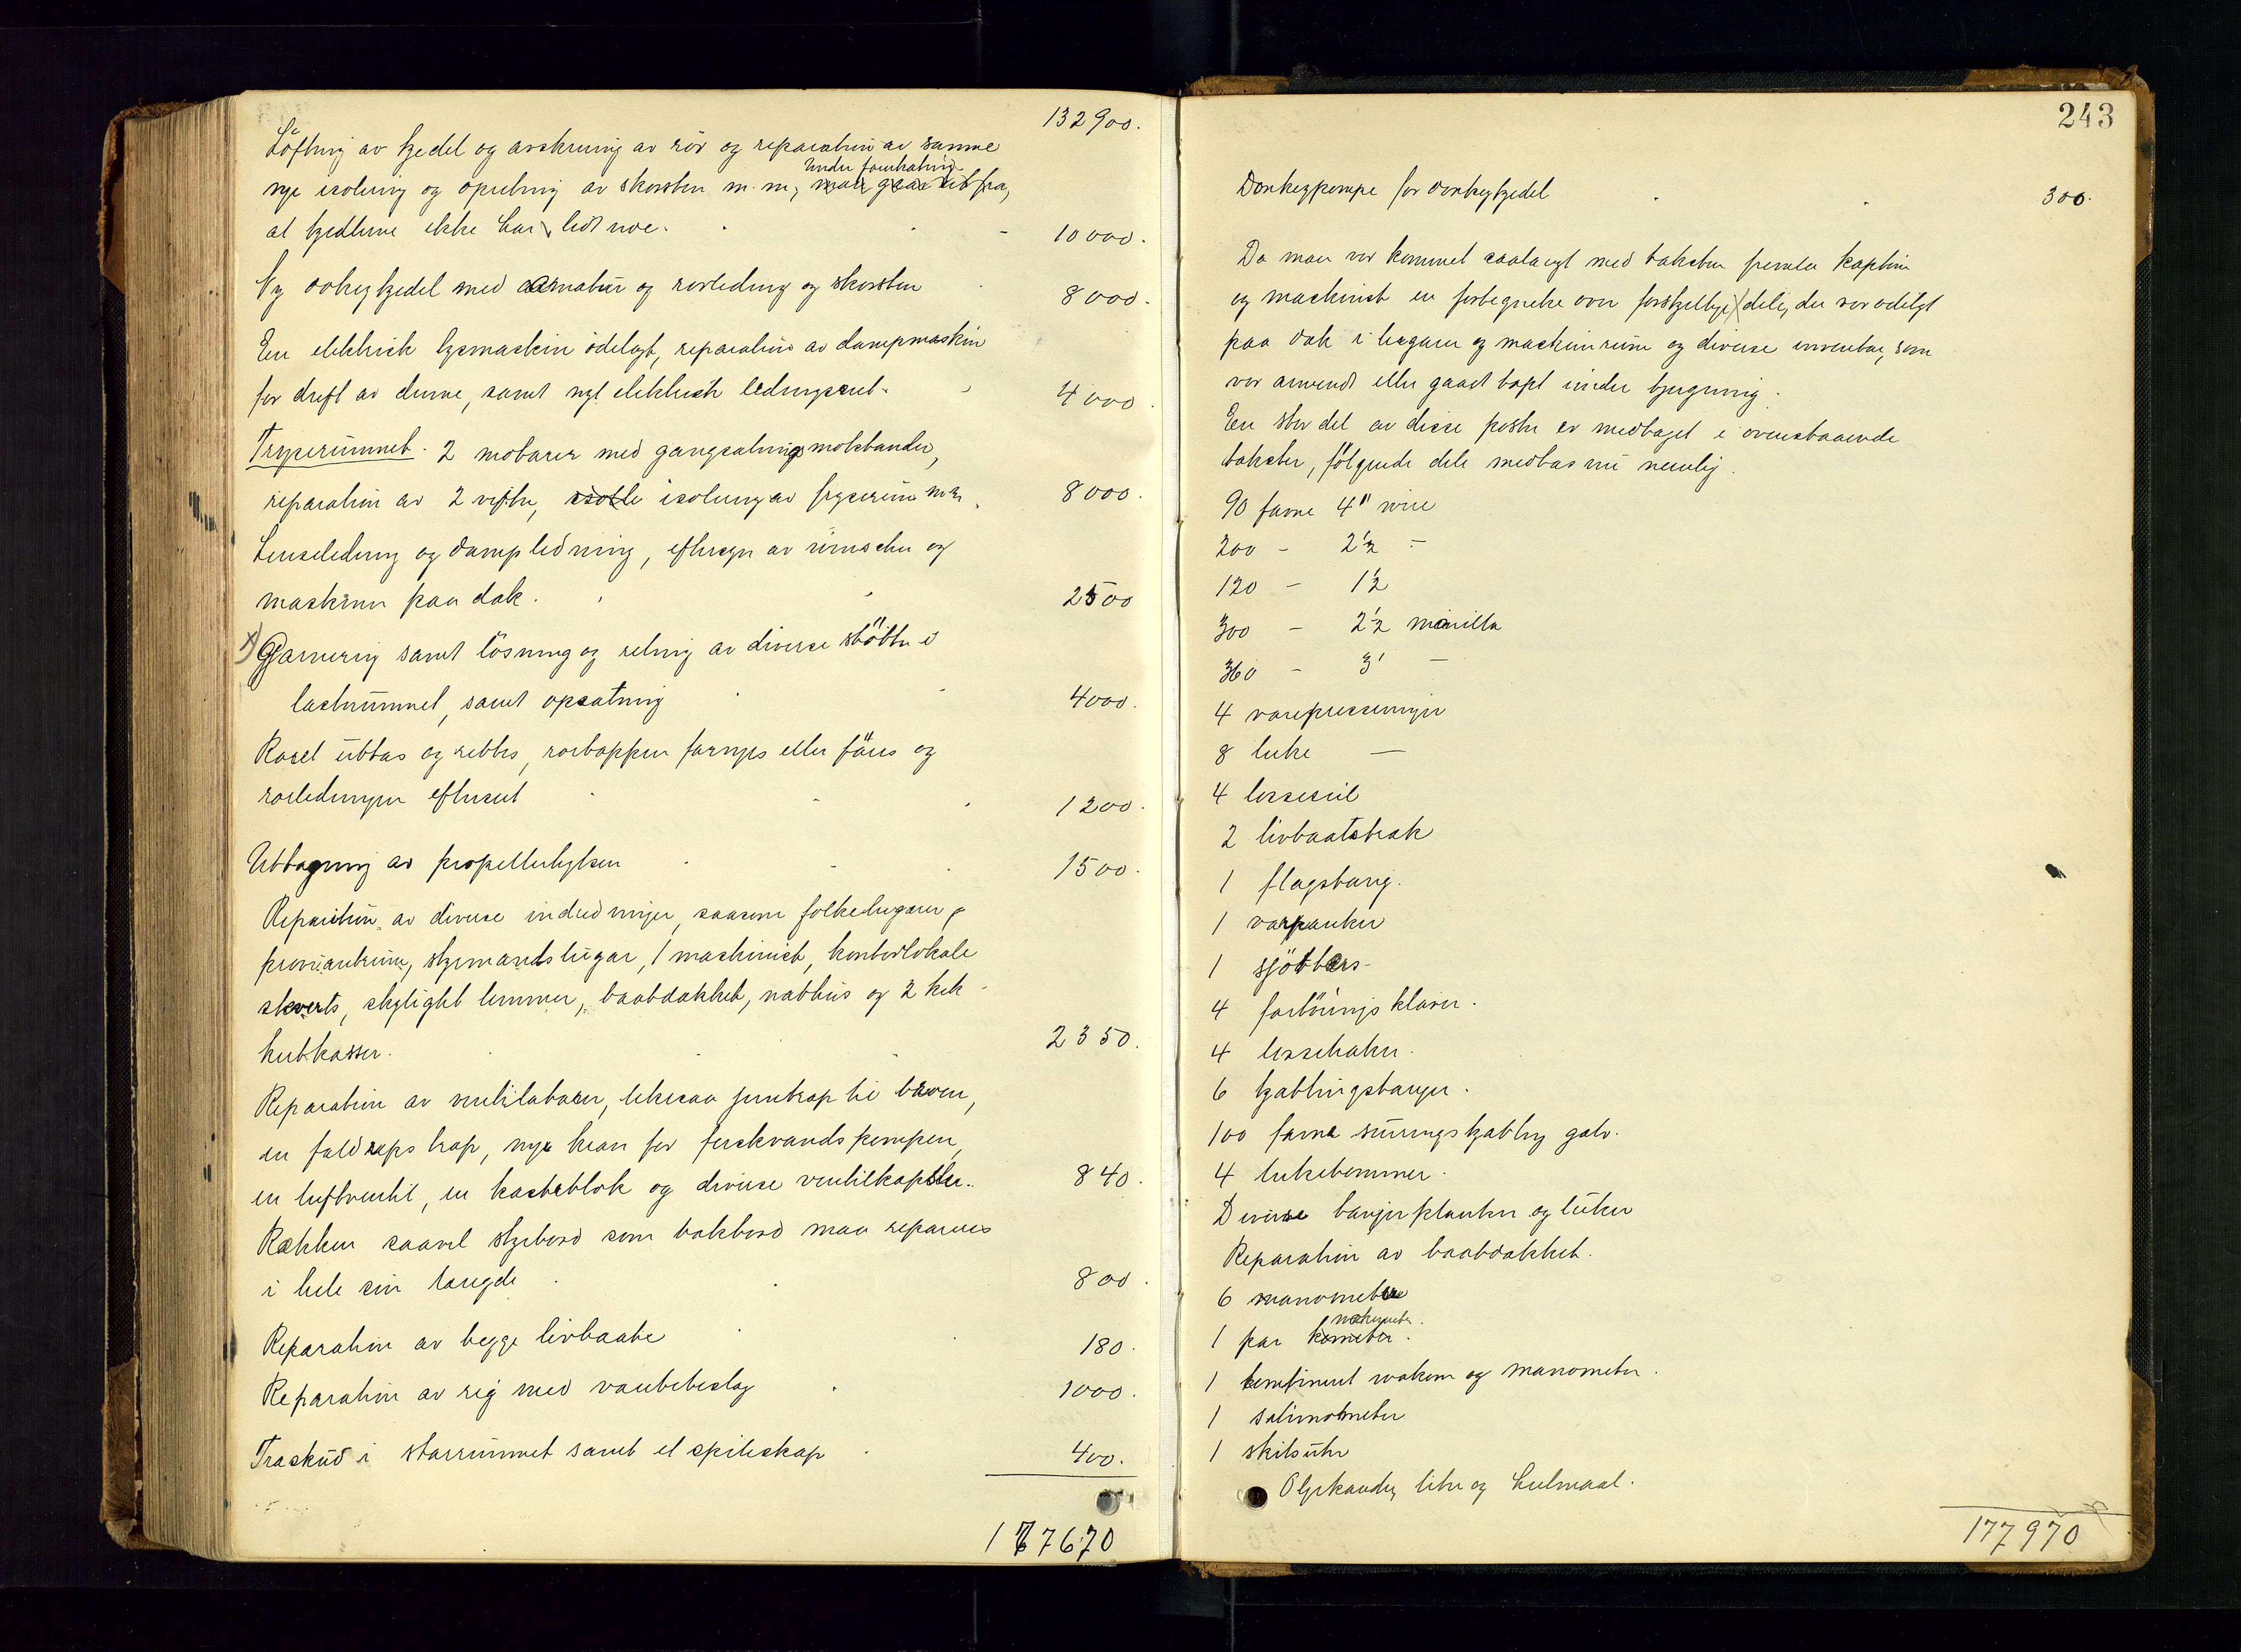 132900.
Löftning av kjedel og avskruing av rör og reparation av samme
under forutsætning
nye isolering og opretning av skorsten m. m, man gaar ut fra,
at kjedlerne ikke har lidt noe. 10 000.
Ny donkeykjedel med armatur og rorledning og skorsten 8000.
En elektrisk lysmaskin ödelagt, reparation av dampmaskin
for drift av denne, samt nyt elektrisk ledningsnet. 4000.
Fryserummet. 2 motorer med igangsætningsmotstander,
reparation av 2 vifter, isolering av fryserum m.m. 8000.
Lenseledning og dampledning, eftersyn av vinscher og
maskiner paa dæk. 2500
x) Garnering samt lösning og retning av diverse stötter i
lastrummet, samt opsætning 4000.
Roret uttas og rettes, rortappen fornyes eller fores og
rorledningen efterset 1200.
Uttagning av propellerhylsen 1500.
Reparation av diverse indredninger, saasom folkelugarer,
proviantrum, styrmandslugar, 1 maskinist, kontorlokale
skverts, skylight lemmer, baatdækket, nathus og 2 hek-
kutkasser. 2350.
Reparation av ventilatorer, likesaa jerntrap til broen,
en faldreps trap, nye kran for ferskvandspumpen,
en luftventil, en kasteblok og diverse ventilkapsler. 840.
Rækken saavel styrbord som bakbord maa repareres
i hele sin længde 800.
Reparation av begge livbaate 180.
Reparation av rig med vantbeslag 1000.
Træskud i storrummet samt et spiseskap 400.
177670
243
Donkeypumpe for donkeykjedel 300.
Da man var kommet saalangt med taksten fremla kaptein
og maskinist en fortegnelse over forskjellige dele, der var ödelagt
paa dæk i lugarer og maskinrum og diverse inventar, som
var anvendt eller gaaet tapt under bjergning.
En stor del av disse poster er medtaget i ovenstaaende
takster, fölgende dele medtas nu nemlig.
90 favne 4" wire
200 - 2½ -
120 - 1½
300 - 2½ manilla
360 - 3' -
4 varepresseninger
8 luke —
4 losseseil
2 livbaatstræk
1 flagstang.
1 varpanker
1 sjötters-
4 fortöinings klaver.
4 lossehaker.
6 kjættingstænger.
100 favne surrings kjætting galv.
4 lukebommer.
Diverse banjer planker og luker
Reparation av baatdækket.
6 manometer
vakumeter.
1 par kometer.
1 kombineret vakum og manometer.
1 salinometer
1 skibsuhr
Oljekander, liter og hulmaal.
177970